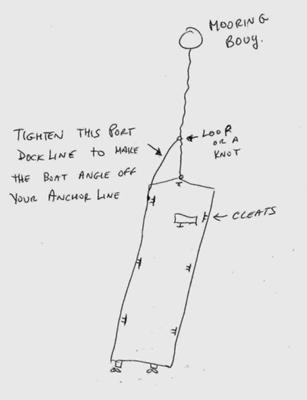 MOORING
BOUY.
LOOP
OR A
KNOT
TIGHTEN THIS PORT
DOCKLINE TO MAKE
THE BOAT ANGLE OFF
YOUR ANCHOR LINE
CLEATS